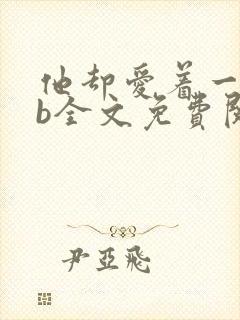 他却爱着一
b全文免费阅
尹亚飛